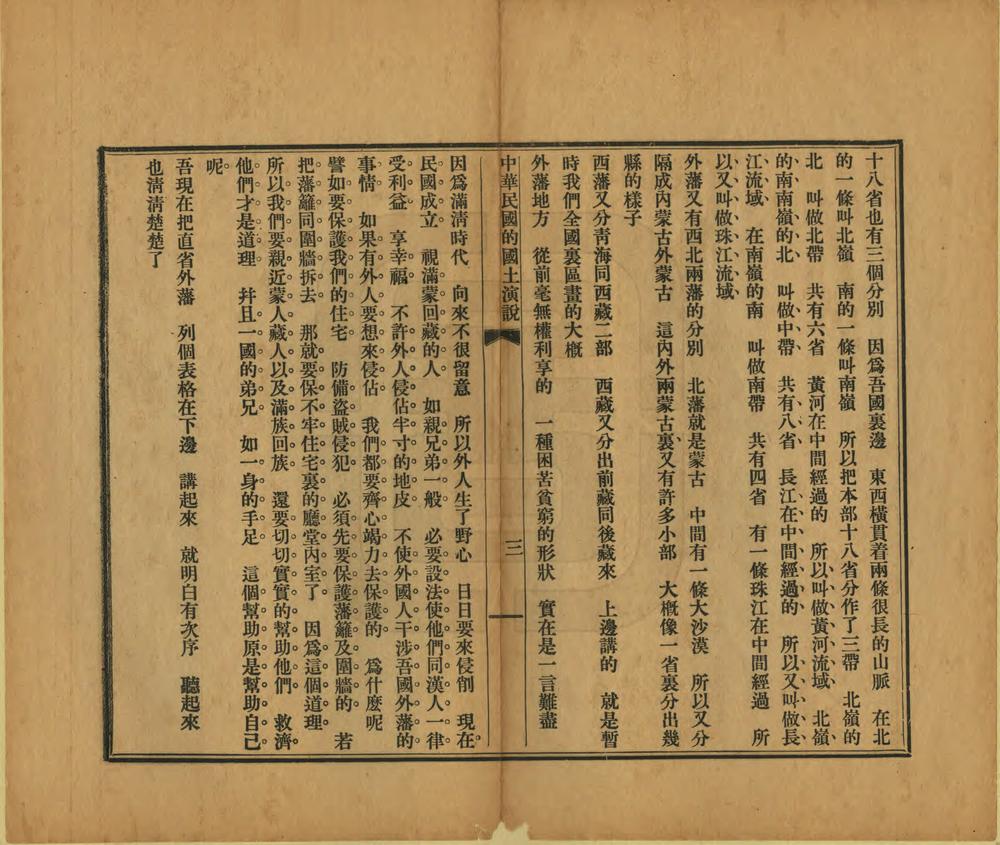 十八省也有三個分別　因爲吾國裏邊　東西橫貫着兩條很長的山脈　在北
的一條叫北嶺　南的一條叫南嶺　所以把本部十八省分作了三帶　北嶺的
北　叫做北帶　共有六省　黃河在中間經過的　所以叫做黃河流域　北嶺
的南南嶺的北　叫做中帶　共有八省　長江在中間經過的　所以又叫做長
江流域　在南嶺的南　叫做南帶　共有四省　有一條珠江在中間經過　所
以又叫做珠江流域
外藩又有西北兩藩的分別　北藩就是蒙古　中間有一條大沙漠　所以又分
隔成內蒙古外蒙古　這內外兩蒙古裏又有許多小部　大槪像一省裏分出幾
縣的樣子
西藩又分靑海同西藏二部　西藏又分出前藏同後藏來　上邊講的　就是暫
時我們全國裏區畫的大槪
外藩地方　從前毫無權利享的　一種困苦貧窮的形狀　實在是一言難盡
中華民國的國土演說　三
因爲滿淸時代　向來不很留意　所以外人生了野心　日日要來侵削　現在
民國成立　視滿蒙回藏的人　如親兄弟一般　必要設法使他們同漢人一律
受利益　享幸福　不許外人侵佔半寸的地皮　不使外國人干涉吾國外藩的
事情　如果有外人要想來侵佔　我們都要齊心竭力去保護的　爲什麼呢
譬如要保護我們的住宅　防備盜賊侵犯　必須先要保護藩籬及圍牆的　若
把藩籬同圍牆拆去　那就要保不牢住宅裏的廳堂內室了　因爲這個道理
所以我們要親近蒙人藏人以及滿族回族　還要切切實實的幫助他們　救濟
他們才是道理　幷且一國的弟兄　如一身的手足　這個幫助原是幫助自己
呢
吾現在把直省外藩　列個表格在下邊　講起來　就明白有次序　聽起來
也淸淸楚楚了